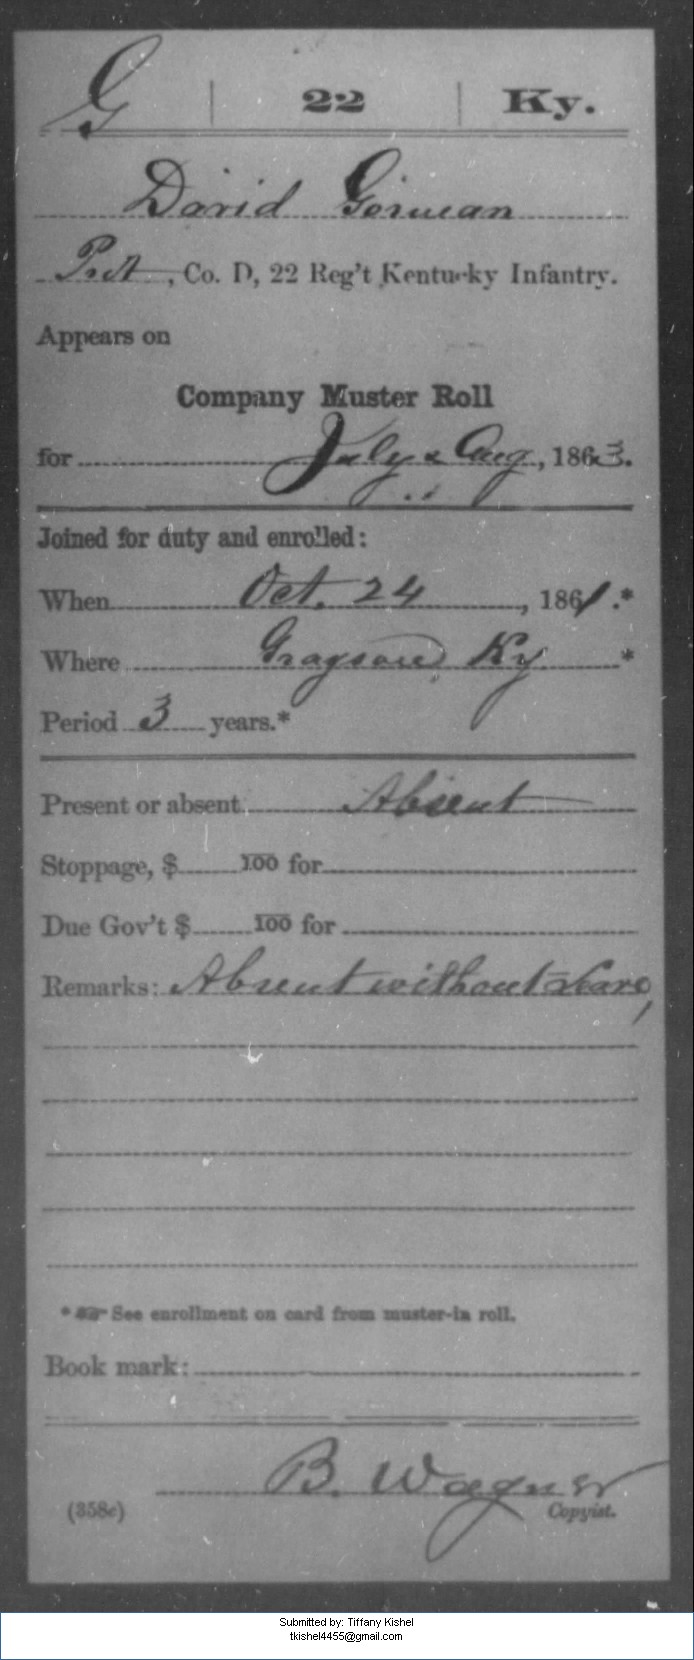 G | 22 | Ky.
David German
Pvt, Co. D, 22 Reg't Kentucky Infantry.
Appears on
Company Muster Roll
for July & Aug, 1863.
Joined for duty and enrolled:
When Oct. 24, 1861.*
Where Grayson, Ky. *
Period 3 years.*
Present or absent Absent
Stoppage, $ 100 for
Due Gov't $ 100 for
Remarks: Absent without Leave,
* See enrollment on card from muster-in roll.
Book mark:
B. Wagner
(358c) Copyist.
Submitted by: Tiffany Kishel
tkishel4455@gmail.com